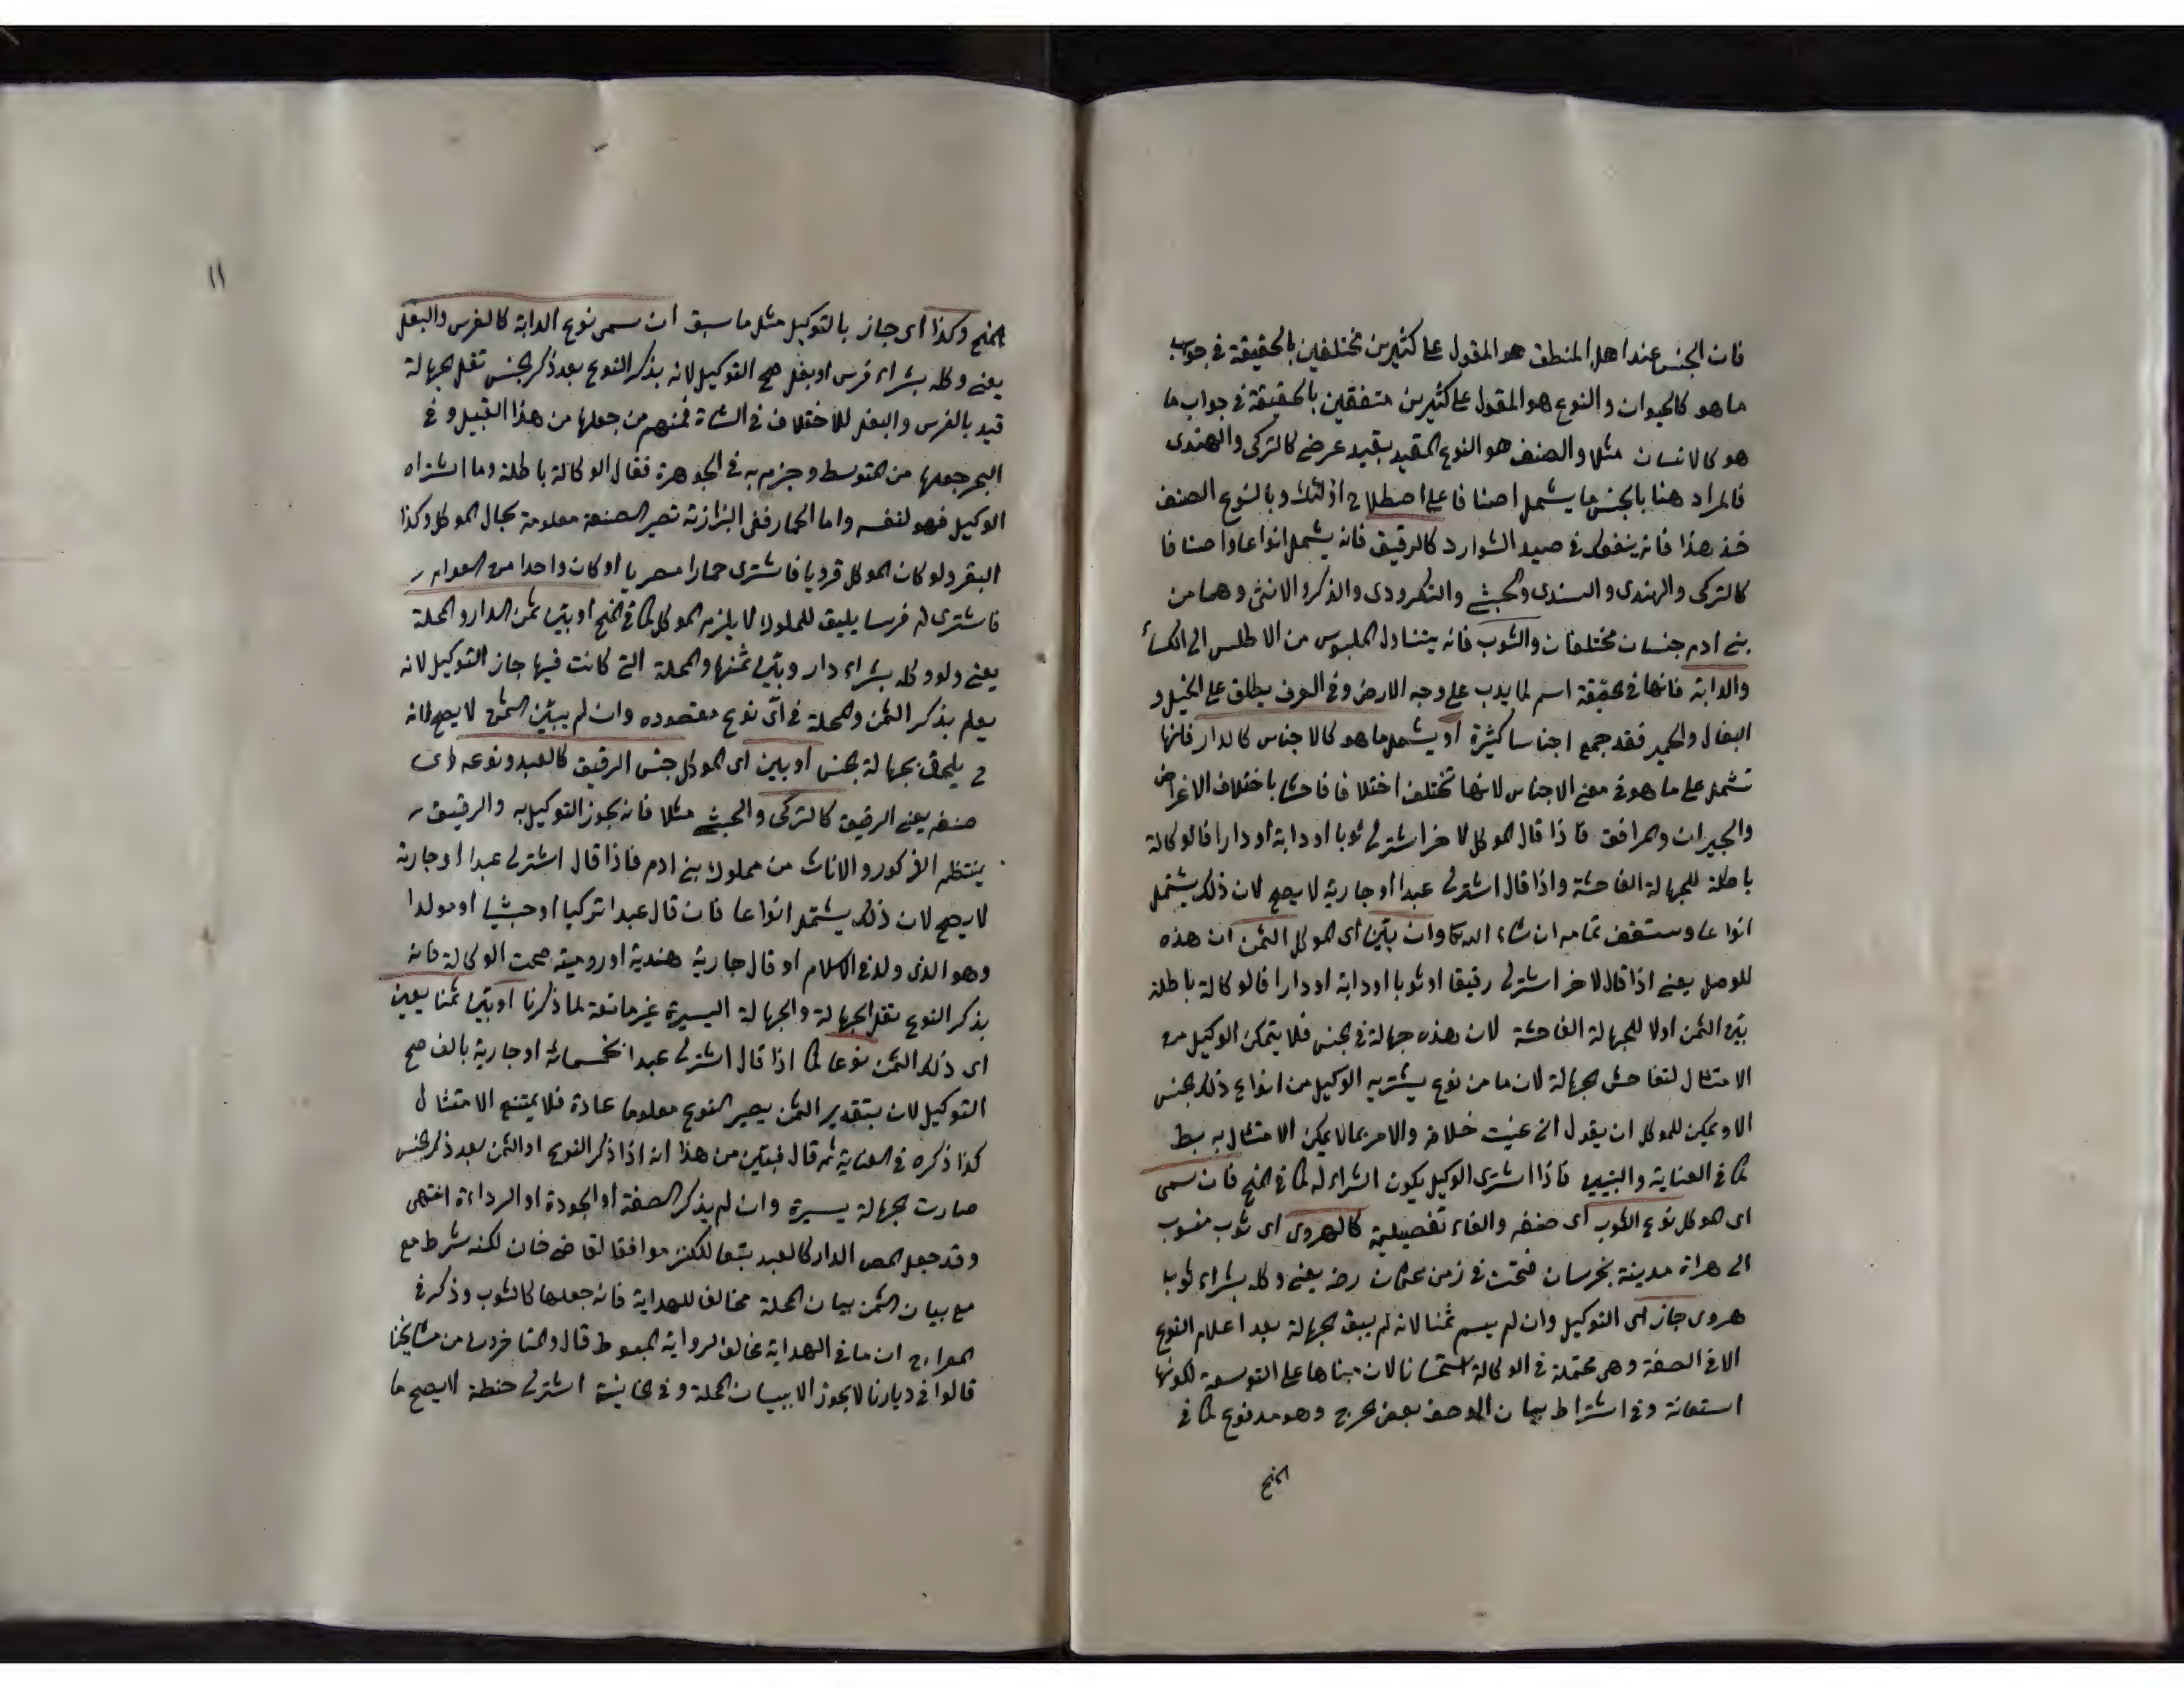 فان الجنس عند اهل المنطق هو المقول على كثيرين مختلفين بالحقيقة في جواب
ما هو كالحيوان والنوع هو المقول على كثيرين متفقين بالحقيقة في جواب ما
هو كالانسان مثلا والصنف هو النوع المقيد بقيد عرضي كالتركي والهندي
فالمراد هنا بالجنس ما يشمل اصنافا على اصطلاح اولئك وبالنوع الصنف
خذ هذا فانه ينفعك في صيد الشوارد كالرقيق فانه يشمل انواعا واصنافا
كالتركي والهندي والسندي والحبشي والتكرودي والذكر والانثى وهما من
بني ادم جنسان مختلفان والثوب فانه يتناول الملبوس من الاطلس الى الكساء
والدابة فانها في الحقيقة اسم لما يدب على وجه الارض وفي العرف يطلق على الخيل و
البغال والحمير فقد جمع اجناسا كثيرة او يشمل ما هو كالاجناس كالدار فانها
تشمل على ما هو في معنى الاجناس لانها تختلف اختلافا فاحشا باختلاف الاغراض
والجيران والمرافق فاذا قال الموكل لاخر اشتر لي ثوبا او دابة او دارا فالوكالة
باطلة للجهالة الفاحشة واذا قال اشتر لي عبدا او جارية لا يصح لان ذلك يشتمل
انواعا وستقف تمامه ان شاء الله تعا وان بين اى الموكل الثمن ان هذه
للوصل يعنى اذا قال لاخر اشتر لي رقيقا او ثوبا او دابة او دارا فالوكالة باطلة
بين الثمن اولا للجهالة الفاحشة لان هذه جهالة في الجنس فلا يتمكن الوكيل من
الامتثال لتفاحش الجهالة لان ما من نوع يشتريه الوكيل من انواع ذلك الجنس
الا ويمكن للموكل ان يقول اني عنيت خلافه والامر بما لا يمكن الامتثال به بط
كما في العناية والتبيين فاذا اشترى الوكيل يكون الشراء له كما في المنح فان سمى
اى الموكل نوع الثوب اى صنفه والفاء تفصيلية كالهروى اى ثوب منسوب
الى هراة مدينة بخرسان فتحت في زمن عثمان رضه يعنى وكله بشراء ثوب
هروى جاز اى التوكيل وان لم يسم ثمنا لانه لم يبق الجهالة بعد اعلام النوع
الا في الصفة وهى محتملة في الوكالة استحسانا لان مبناها على التوسعة لكونها
استعانة وفي اشتراط بيان الوصف بعض الحرج وهو مدفوع كما في
المنح
١١
المنح وكذا اى جاز بالتوكيل مثل ما سبق ان سمى نوع الدابة كالفرس والبغل
يعنى وكله بشراء فرس او بغل صح التوكيل لانه بذكر النوع بعد ذكر الجنس تقل الجهالة
قيد بالفرس والبغل للاختلاف في الشاة فمنهم من جعلها من هذا القبيل وفي
البحر جعلها من المتوسط وجزم به في الجوهرة فقال الوكالة باطلة وما اشتراه
الوكيل فهو لنفسه واما الحمار ففي البزازية تصير الصنعة معلومة بحال الموكل وكذا
البقر ولو كان الموكل قرويا فاشترى حمارا مصريا او كان واحدا من العوام
فاشترى له فرسا يليق للملوك لا يلزم الموكل كما في المنح او بين ثمن الدار والمحلة
يعنى ولو وكله بشراء دار وبين ثمنها والمحلة التي كانت فيها جاز التوكيل لانه
يعلم بذكر الثمن والمحلة في اىّ نوع مقصوده وان لم يبين الثمن لا يصح لانه
ح يلحق بجهالة الجنس او بين اى الموكل جنس الرقيق كالعبد ونوعه اى
صنفه يعنى الرقيق كالتركي والحبشي مثلا فانه يجوز التوكيل به والرقيق
ينتظم الذكور والاناث من مملوك بني ادم فاذا قال اشتر لي عبدا او جارية
لا يصح لان ذلك يشتمل انواعا فان قال عبدا تركيا او حبشيا او مولدا
وهو الذى ولد في الاسلام او قال جارية هندية او رومية صحت الوكالة فانه
بذكر النوع تقل الجهالة والجهالة اليسيرة غير مانعة لما ذكرنا او بين ثمنا يعين
اى ذلك الثمن نوعا كما اذا قال اشتر لي عبدا بخمسمائة او جارية بالف صح
التوكيل لان بتقدير الثمن يصير النوع معلوما عادة فلا يمتنع الامتثال
كذا ذكره في العناية ثم قال فتبين من هذا انه اذا ذكر النوع او الثمن بعد ذكر الجنس
صارت الجهالة يسيرة وان لم يذكر الصفة او الجودة او الرداءة انتهى
وقد جعل المص الدار كالعبد تبعا للكنز موافقا لقاضي خان لكنه شرط مع
مع بيان الثمن بيان المحلة مخالف للهداية فانه جعلها كالثوب وذكر في
المعراج ان ما في الهداية مخالف لرواية المبسوط قال والمتاخرون من مشايخنا
قالوا في ديارنا لا يجوز الا ببيان المحلة وفي الخانية اشتر لي حنطة لا يصح ما